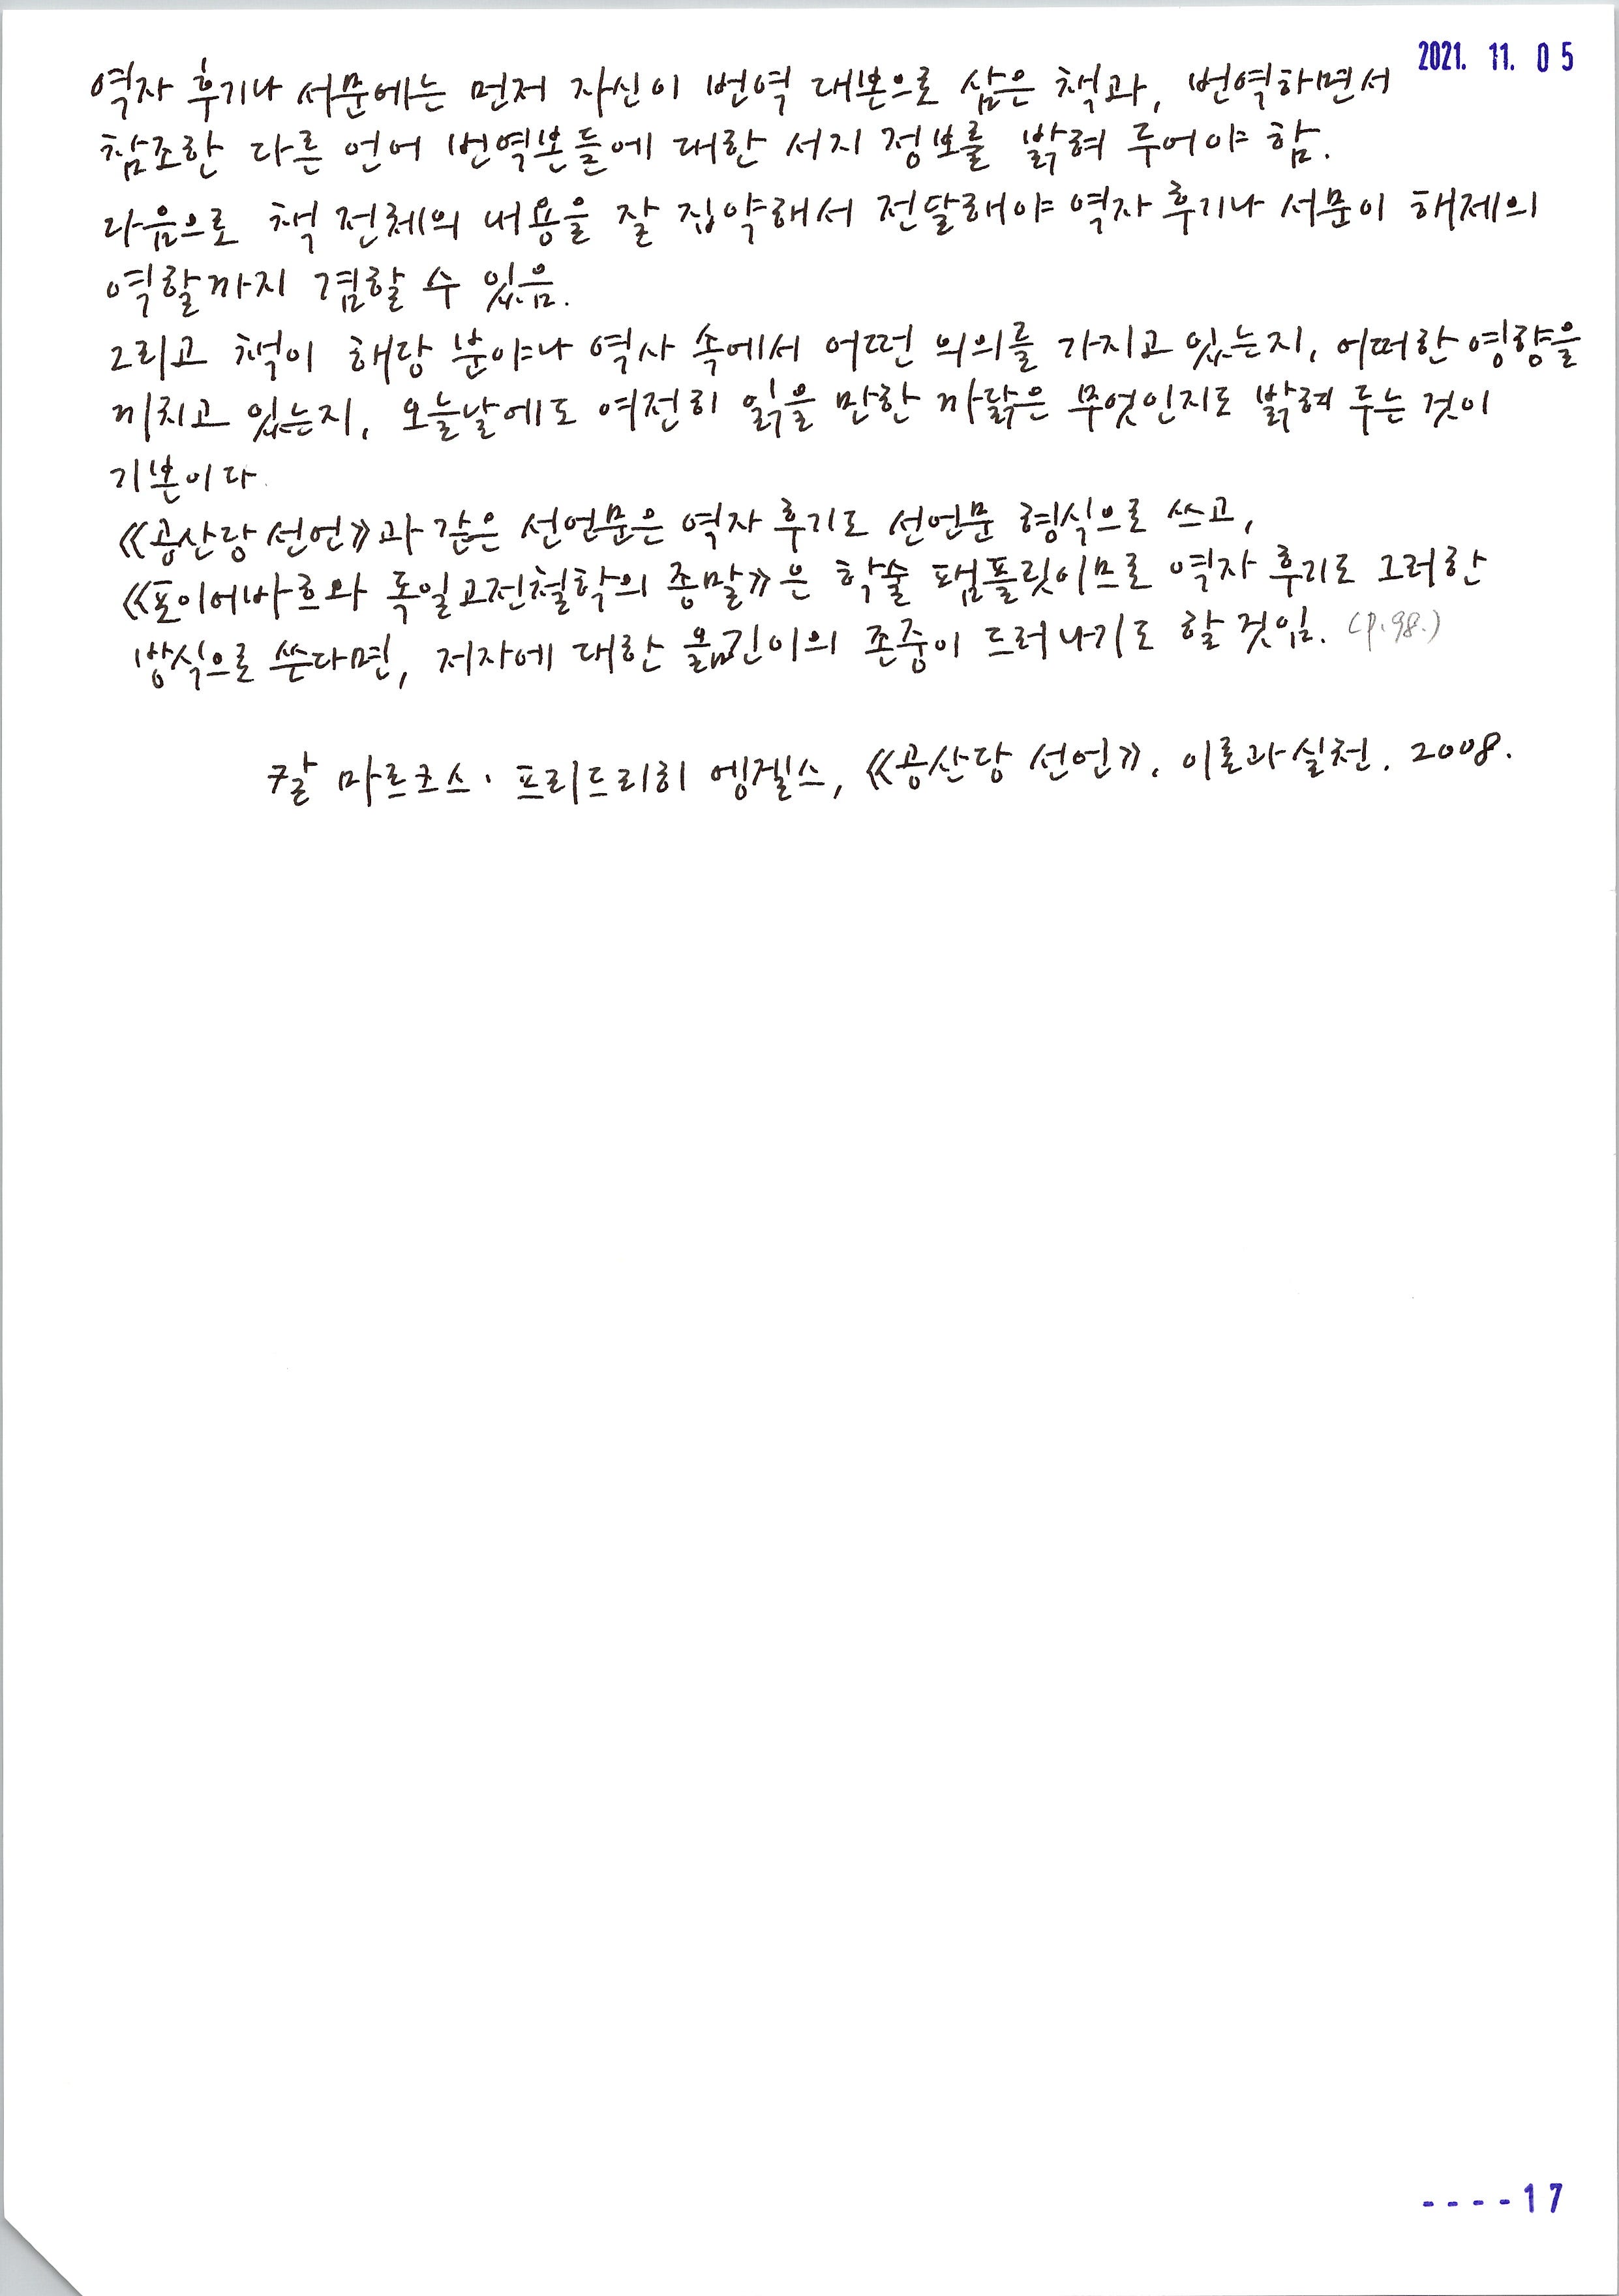 2021. 11. 05
역자 후기나 서문에는 먼저 자신이 번역 대본으로 삼은 책과, 번역하면서
참조한 다른 언어 번역본들에 대한 서지 정보를 밝혀 두어야 함.
다음으로 책 전체의 내용을 잘 집약해서 전달해야 역자 후기나 서문이 해제의
역할까지 겸할 수 있음.
그리고 책이 해당 분야나 역사 속에서 어떤 의의를 가지고 있는지, 어떠한 영향을
미치고 있는지, 오늘날에도 여전히 읽을 만한 까닭은 무엇인지도 밝혀 두는 것이
기본이다.
《공산당 선언》과 같은 선언문은 역자 후기도 선언문 형식으로 쓰고,
《포이어바흐와 독일고전철학의 종말》은 학술 팸플릿이므로 역자 후기도 그러한
방식으로 쓴다면, 저자에 대한 옮긴이의 존중이 드러나기도 할 것임. (p.98.)
칼 마르크스·프리드리히 엥겔스, 《공산당 선언》, 이론과실천, 2008.
----17